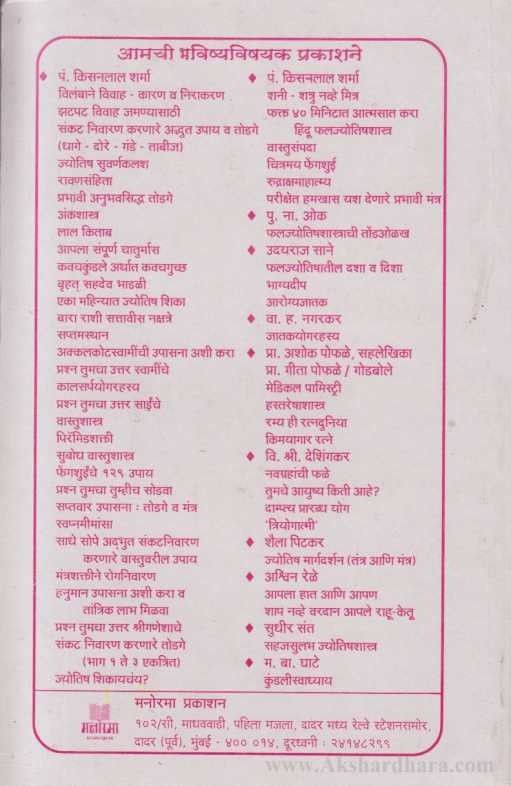 आमची भविष्यविषयक प्रकाशने
♦ पं. किसनलाल शर्मा
विलंबाने विवाह - कारण व निराकरण
झटपट विवाह जमण्यासाठी
संकट निवारण करणारे अद्भुत उपाय व तोडगे
(धागे - दोरे - गंडे - ताबीज)
ज्योतिष सुवर्णकलश
रावणसंहिता
प्रभावी अनुभवसिद्ध तोडगे
अंकशास्त्र
लाल किताब
आपला संपूर्ण चातुर्मास
कवचकुंडले अर्थात कवचगुच्छ
बृहत् सहदेव भाडळी
एका महिन्यात ज्योतिष शिका
बारा राशी सत्तावीस नक्षत्रे
सप्तमस्थान
अक्कलकोटस्वामींची उपासना अशी करा
प्रश्न तुमचा उत्तर स्वामींचे
कालसर्पयोगरहस्य
प्रश्न तुमचा उत्तर साईंचे
वास्तुशास्त्र
पिरॅमिडशक्ती
सुबोध वास्तुशास्त्र
फेंगशुईचे १२९ उपाय
प्रश्न तुमचा तुम्हीच सोडवा
सप्तवार उपासना : तोडगे व मंत्र
स्वप्नमीमांसा
साधे सोपे अद्‌भुत संकटनिवारण
करणारे वास्तुवरील उपाय
मंत्रशक्तीने रोगनिवारण
हनुमान उपासना अशी करा व
तांत्रिक लाभ मिळवा
प्रश्न तुमचा उत्तर श्रीगणेशाचे
संकट निवारण करणारे तोडगे
(भाग १ ते ३ एकत्रित)
ज्योतिष शिकायचंय?
♦ पं. किसनलाल शर्मा
शनी - शत्रू नव्हे मित्र
फक्त ४० मिनिटात आत्मसात करा
हिंदू फलज्योतिषशास्त्र
वास्तुसंपदा
चित्रमय फेंगशुई
रुद्राक्षमाहात्म्य
परीक्षेत हमखास यश देणारे प्रभावी मंत्र
♦ पु. ना. ओक
फलज्योतिषशास्त्राची तोंडओळख
♦ उदयराज साने
फलज्योतिषातील दशा व दिशा
भाग्यदीप
आरोग्यजातक
♦ वा. ह. नगरकर
जातकयोगरहस्य
♦ प्रा. अशोक पोफळे, सहलेखिका
प्रा. गीता पोफळे / गोडबोले
मेडिकल पामिस्ट्री
हस्तरेषाशास्त्र
रम्य ही रत्नदुनिया
किमयागार रत्ने
♦ वि. श्री. देशिंगकर
नवग्रहांची फळे
तुमचे आयुष्य किती आहे?
दाम्पत्य प्रारब्ध योग
'त्रियोगात्मी'
♦ शैला पिटकर
ज्योतिष मार्गदर्शन (तंत्र आणि मंत्र)
♦ अश्विन रेळे
आपला हात आणि आपण
शाप नव्हे वरदान आपले राहू-केतू
♦ सुधीर संत
सहजसुलभ ज्योतिषशास्त्र
♦ म. बा. घाटे
कुंडलीस्वाध्याय
मनोरमा
मनोरमा प्रकाशन
१०२/सी, माधववाडी, पहिला मजला, दादर मध्य रेल्वे स्टेशनसमोर,
दादर (पूर्व), मुंबई - ४०० ०१४, दूरध्वनी : २४१४८२९९
www.Akshardhara.com